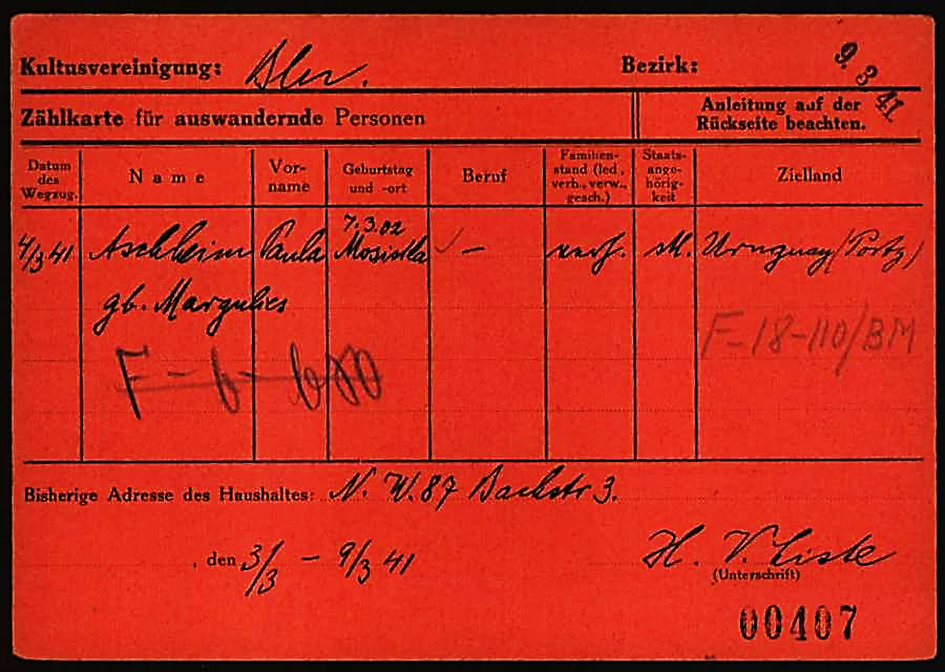 Kultusvereinigung: Bln. Bezirk:
9. 3 41
Zählkarte für auswandernde Personen
Anleitung auf der
Rückseite beachten.
Datum des Wegzug. Name Vor-name Geburtstag und -ort Beruf Familien-stand (led, verh., verw., gesch.) Staats-ange-hörig-keit Zielland
7.3.02
4/3 41 Aschheim Paula ✓ – verh. Uruguay (Portg)
gb. Margulies
F-18-110/BM
F-6-680
Bisherige Adresse des Haushaltes: N. W. 87 Bachstr 3.
, den 3/3 – 9/3 41 H. V. Liste
(Unterschrift)
00407